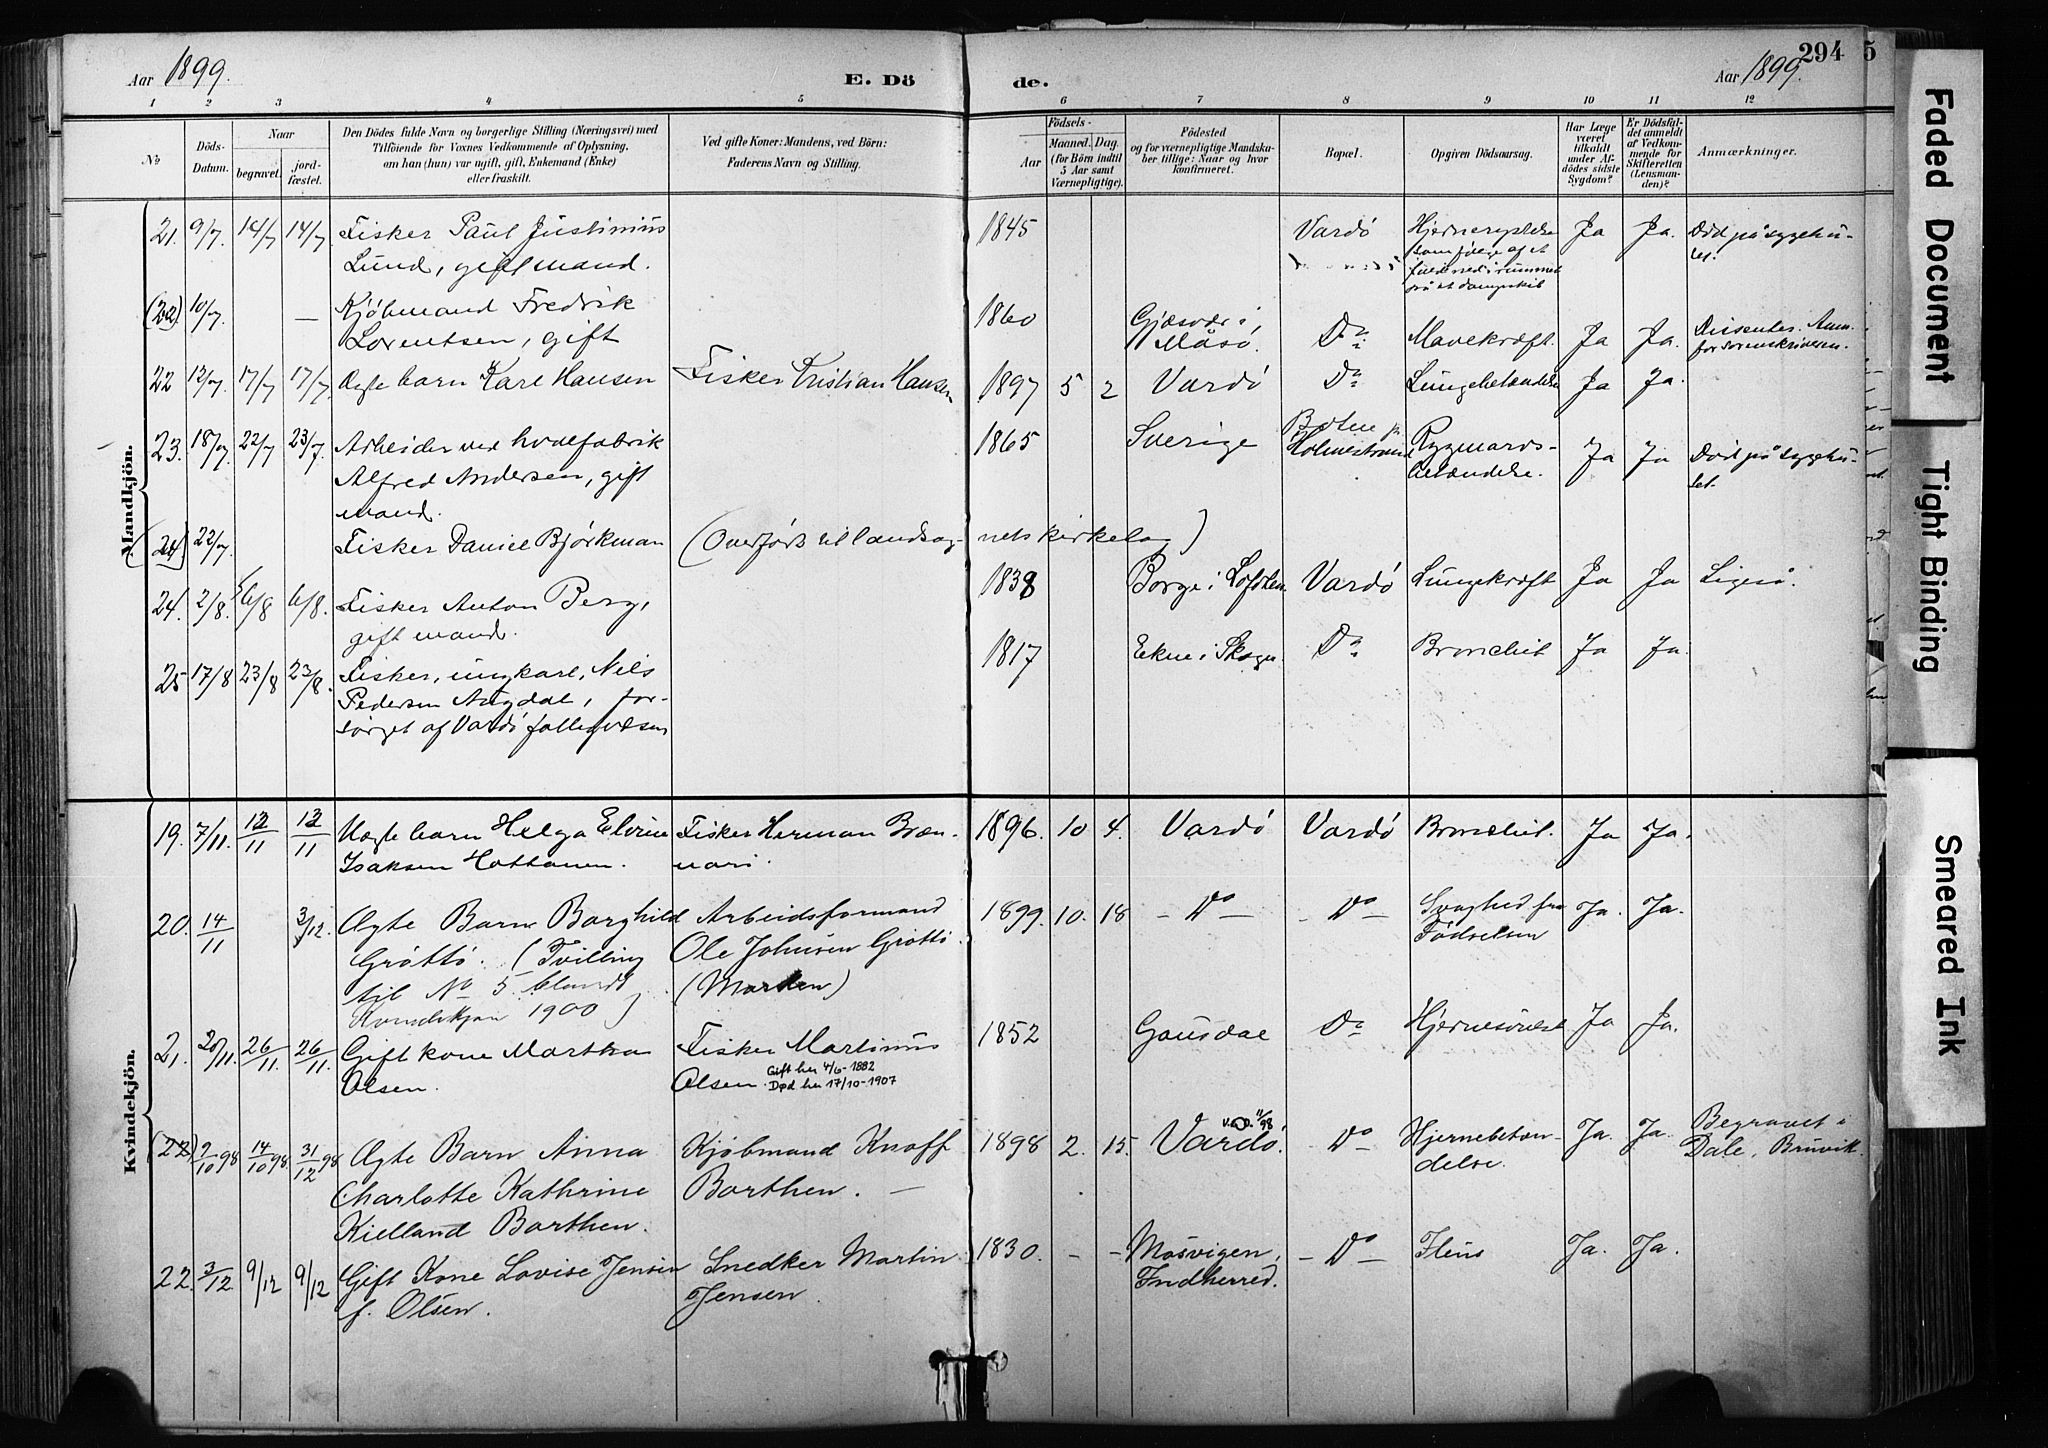 Aar 1899.
E. Dö
de.
Aar 1899.
294
5
1 2 3 4 5 6 7 8 9 10 11 12
No
Döds-
Datum.
Naar
begravet.
jord-
fæstet.
Den Dödes fulde Navn og borgerlige Stilling (Næringsvei) med
Tilföiende for Voxnes Vedkommende af Oplysning,
om han (hun) var ugift, gift, Enkemand (Enke)
eller fraskilt.
Ved gifte Koner: Mandens, ved Börn:
Faderens Navn og Stilling.
Födsels-
Aar
Maaned. Dag.
(for Börn indtil
5 Aar samt
Værnepligtige).
Födested
og for værnepligtige Mandska-
ber tillige: Naar og hvor
konfirmeret.
Bopæl.
Opgiven Dödsaarsag.
Har Læge
været
tilkaldt
under Af-
dödes sidste
Sygdom?
Er Dödsfal-
det anmeldt
af Vedkom-
mende for
Skifteretten
(Lensman-
den)?
Anmærkninger.
Mandkjön.
21. 9/7. 14/7 14/7 Fisker Paul Justinius 1845 Vardö Ja Ja. Död på sygehu-
Lund, gift mand. set.
(22) 10/7. — Kjöbmand Fredrik 1860 Gjæsvær i Do Mavekræft. Ja Ja. Dissenter. Anm.
Lorentsen, gift Måsö. for sorenskriveren.
22 12/7. 17/7 17/7. Ægte barn Karl Hansen Fisker Kristian Hansen 1897 5 2 Vardö Do Lungebetændelse Ja Ja.
23. 18/7. 22/7 23/7. Arbeider ved hvalfabrik 1865 Sverige Holmestrand Rygmarvs- Ja Ja Död på sygehu-
Alfred Andersen, gift betændelse. set.
mand.
(24) 22/7. Fisker Daniel Bjørkman (Overført til landsog- nets kirkebog)
24. 2/8. 6/8 6/8. Fisker Anton Berg, 1838 Borge i Lofoten Vardö Lungekræft Ja Ja Ligesö.
gift mand.
25 17/8 23/8 23/8. Fisker, ungkarl, Nils 1817 Ekne i Skogn Do Bronchit Ja Ja.
Pedersen Augdal, for-
sörget af Vardö fattigvæsen
Kvindekjön.
19. 7/11. 12/11 12/11 Uægte barn Helga Elvine Fisker Herman 1896. 10 4. Vardö Vardö Bronchit. Ja Ja.
Isaksen
20. 14/11 3/12. Ægte Barn Borghild Arbeidsformand 1899. 10. 18 — Do — — Do — Svaghed fra Ja. Ja.
Gröttö. (Tvilling Ole Johnsen Gröttö. Födselsen
til No 5 blandt (Morten)
Kvindekjön 1900)
21. 20/11. 26/11. 26/11. Gift kone Martha Fisker Martinus 1852 Gausdal Do Ja Ja.
Olsen. Olsen. Gift her 4/6-1882
Død her 17/10-1907
(22) 9/10 98 14/10 98. 31/12 98 Ægte Barn Anna Kjöbmand Knoff 1898 2. 15. Vardö. Do Hjernebetæn- Ja. Ja. Begravet i
Charlotte Kathrine Borthen. — delse. Dale, Bruvik.
Kielland Borthen.
22. 3/12. 9/12 9/12 Gift Kone Lovise Jensen Snedker Martin 1830. - - Mosvigen, — Do — Ileus Ja. Ja.
f. Olsen. Jensen. Indherred.
Faded Document
Tight Binding
Smeared Ink